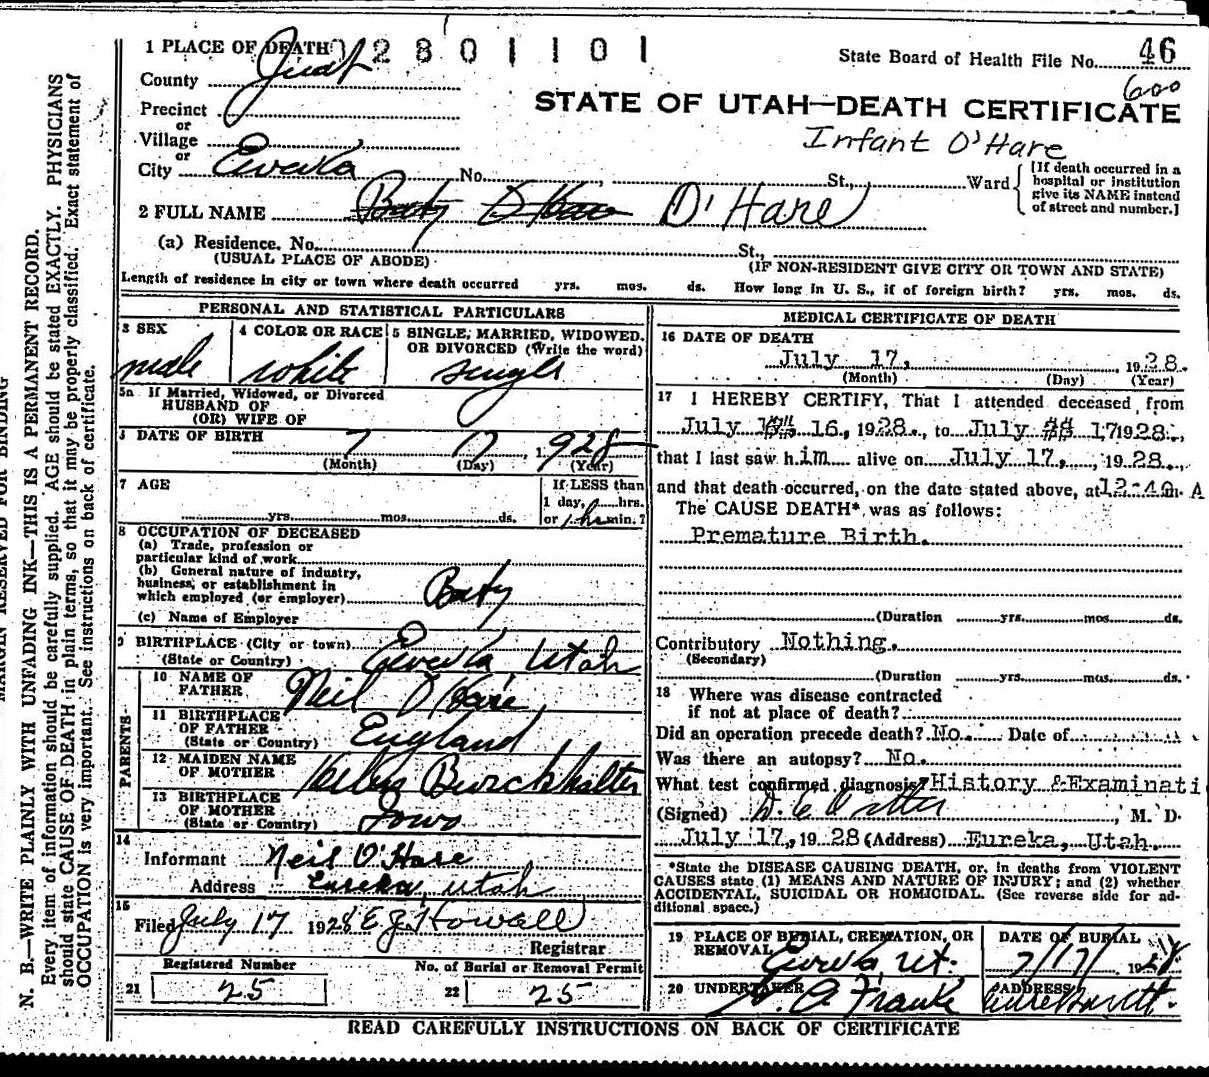 1 PLACE OF DEATH 02801101
State Board of Health File No. 46
600
County Juab
STATE OF UTAH—DEATH CERTIFICATE
Precinct
or
Village
Infant O'Hare
or
City Eureka No. St., Ward
[If death occurred in a
hospital or institution
give its NAME instead
of street and number.]
2 FULL NAME Baby O'Hare O'Hare
(a) Residence. No. St.,
(USUAL PLACE OF ABODE) (IF NON-RESIDENT GIVE CITY OR TOWN AND STATE)
Length of residence in city or town where death occurred yrs. mos. ds. How long in U. S., if of foreign birth? yrs. mos. ds.
PERSONAL AND STATISTICAL PARTICULARS
3 SEX
male
4 COLOR OR RACE
white
5 SINGLE, MARRIED, WIDOWED,
OR DIVORCED (Write the word)
single
5a If Married, Widowed, or Divorced
HUSBAND OF
(OR) WIFE OF
DATE OF BIRTH 7 17 1928
(Month) (Day) (Year)
7 AGE
yrs. mos. ds.
If LESS than
1 day, hrs.
or 1 hr min.?
8 OCCUPATION OF DECEASED
(a) Trade, profession or
particular kind of work
(b) General nature of industry,
business, or establishment in
which employed (or employer) Baby
(c) Name of Employer
9 BIRTHPLACE (City or town)
(State or Country) Eureka Utah
PARENTS
10 NAME OF
FATHER Neil O'Hare
11 BIRTHPLACE
OF FATHER
(State or Country) England
12 MAIDEN NAME
OF MOTHER Helen Burckhalter
13 BIRTHPLACE
OF MOTHER
(State or Country) Iowa
14
Informant Neil O'Hare
Address Eureka, Utah
15
Filed July 17 1928 E J Howell
Registrar
Registered Number No. of Burial or Removal Permit
21 25 22 25
MEDICAL CERTIFICATE OF DEATH
16 DATE OF DEATH
July 17, 1928.
(Month) (Day) (Year)
17 I HEREBY CERTIFY, That I attended deceased from
July 16, 1928., to July 17 1928.,
that I last saw him alive on July 17, 1928.,
and that death occurred, on the date stated above, at 12-40 m. A
The CAUSE DEATH*, was as follows:
Premature Birth.
(Duration yrs. mos. ds.
Contributory Nothing.
(Secondary)
(Duration yrs. mos. ds.
18 Where was disease contracted
if not at place of death?
Did an operation precede death? No. Date of
Was there an autopsy? No.
What test confirmed diagnosis? History & Examinati
(Signed) M. D.
July 17, 1928 (Address) Eureka, Utah.
*State the DISEASE CAUSING DEATH, or, in deaths from VIOLENT
CAUSES state (1) MEANS AND NATURE OF INJURY; and (2) whether
ACCIDENTAL, SUICIDAL OR HOMICIDAL. (See reverse side for ad-
ditional space.)
19 PLACE OF BURIAL, CREMATION, OR
REMOVAL Eureka Ut.
DATE OF BURIAL
7/17/ 1928
20 UNDERTAKER Franke
ADDRESS Eureka Ut.
READ CAREFULLY INSTRUCTIONS ON BACK OF CERTIFICATE
MARGIN RESERVED FOR BINDING
N. B.—WRITE PLAINLY WITH UNFADING INK—THIS IS A PERMANENT RECORD.
Every item of information should be carefully supplied. AGE should be stated EXACTLY. PHYSICIANS
should state CAUSE OF DEATH in plain terms, so that it may be properly classified. Exact statement of
OCCUPATION is very important. See instructions on back of certificate.